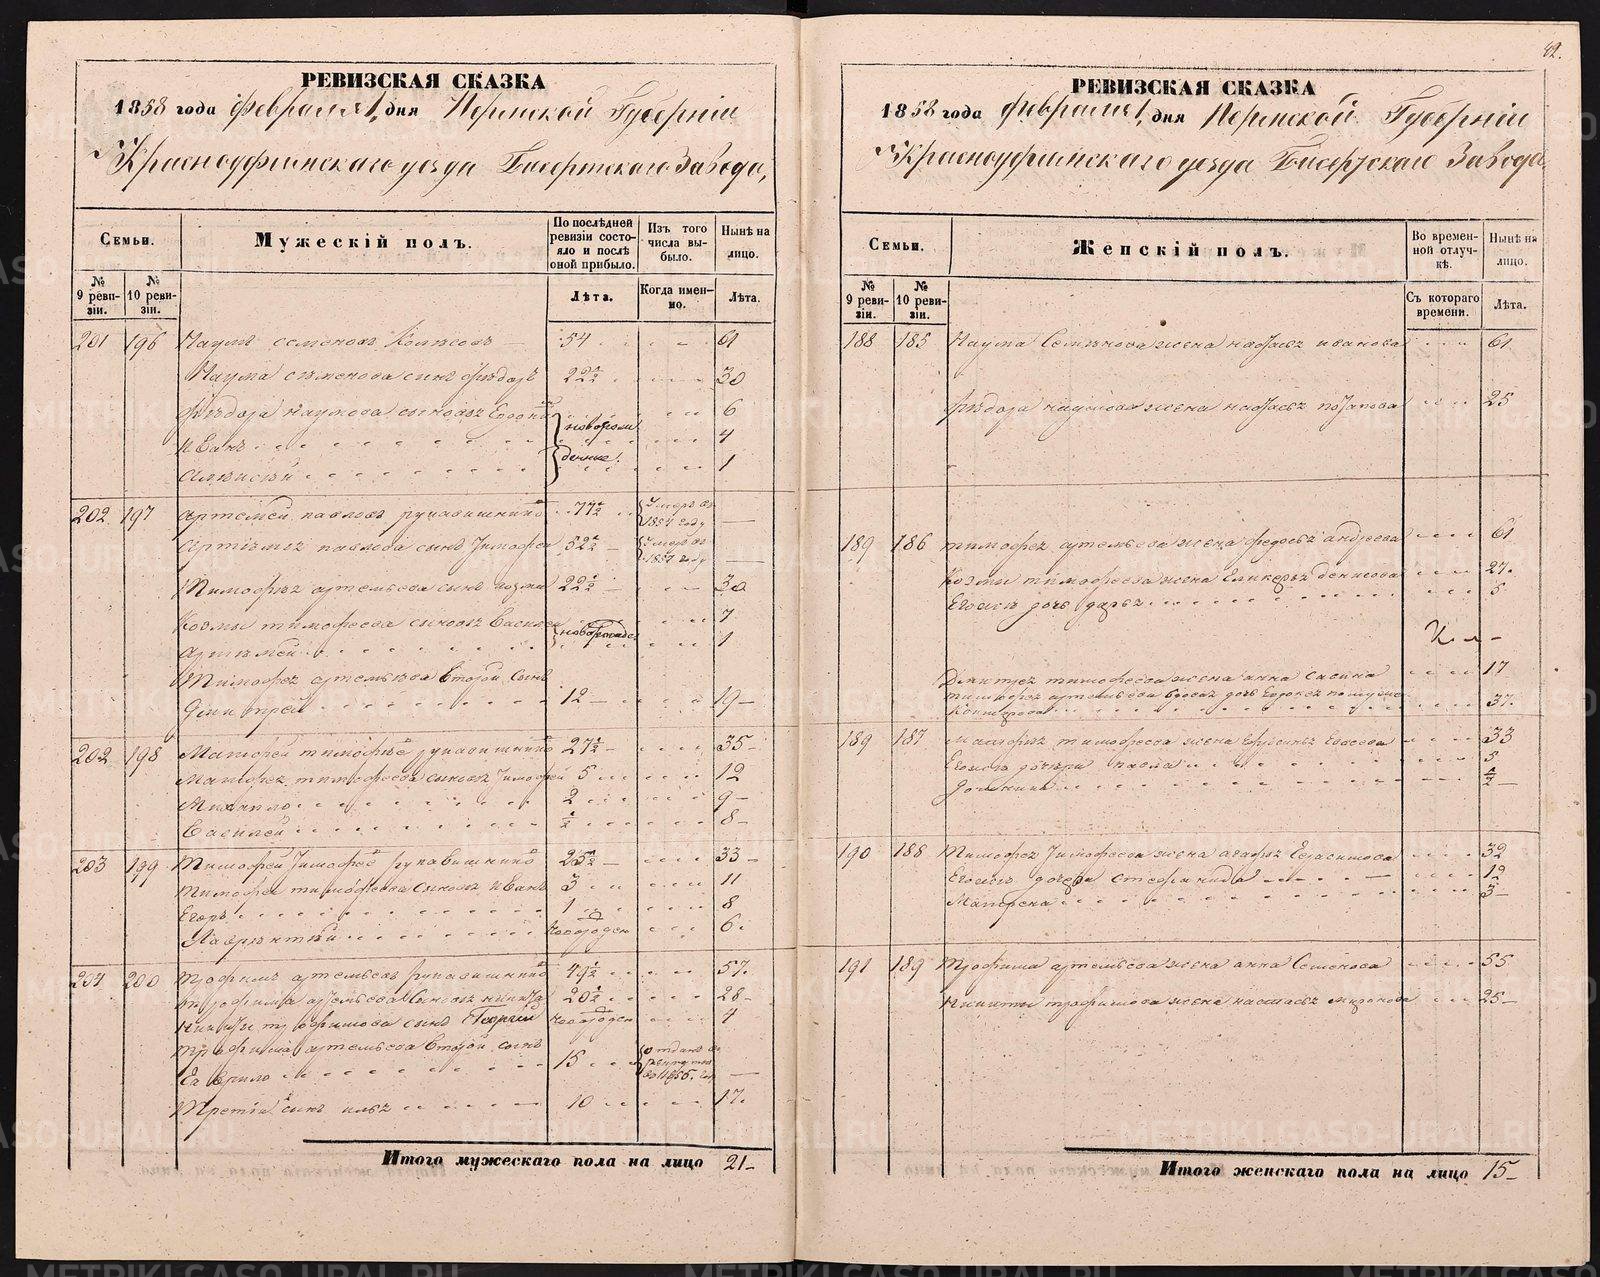 42.
РЕВИЗСКАЯ СКАЗКА
1858 года февраля 1, дня Пермской Губернiи
Красноуфимскаго уезда Бисертскаго Завода,
Семьи.
№ 9 реви-зiи.
№ 10 реви-зiи.
Мужескiй полъ.
По послѣдней ревизiи состо-яло и послѣ оной прибыло.
Лѣта.
Изъ того числа вы-было.
Когда имен-но.
Нынѣ на лицо.
Лѣта.
201 196 Наумъ семеновъ 54 61
Наума семенова сынъ Фѣдоръ 22½ 30
Фѣдора наумова сыновъ 6
иванъ новорож 4
Алѣксѣй денные 1
202 197 Артемей павловъ рукавишников 77½ Умеръ въ 1851 году —
Артѣмья павлова сынъ Тимофей 52½ Умеръ въ 1857 году —
Тимофея артемьева сынъ козма 22½ 30
Козмы тимофеева сыновъ Василей 7
Артѣмей новорожде 1
Тимофея артемьева второй сынъ
Дмитрей 12 19
202 198 Матфей тимофее рукавишников 27½ 35
Матфея тимофеева сыновъ Тимофей 5 12
Михаило 2 9
Василей ½ 8
203 199 Тимофей Тимофее рукавишников 25½ 33
Тимофея тимофеева сыновъ иванъ 3 11
Егоръ 1 8
Лаврѣнтѣй новорожден 6
204 200 Трофимъ артемьевъ рукавишников 49½ 57
Трофима артемьева сыновъ никита 20½ 28
Никиты трофимова сынъ Георгий новорожден 4
Трофима артемьева второй сынъ
Гаврило 15 отданъ въ рекруты въ 1855 году —
Третiй сынъ илья 10 17
Итого мужескаго пола на лицо 21
РЕВИЗСКАЯ СКАЗКА
1858 года февраля 1, дня Пермской Губернiи
Красноуфимскаго уезда Бисертскаго Завода
Семьи.
№ 9 реви-зiи.
№ 10 реви-зiи.
Женскiй полъ.
Во времен-ной отлуч-кѣ.
Съ котораго времени.
Нынѣ на лицо.
Лѣта.
188 185 Наума Семѣнова жена настасья иванова 61
Фѣдора наумова жена настасья потапова 25
189 186 тимофея артемьева жена федосья андреева 61
Козмы тимофеева жена Гликерья денисова 27
Его дочь дарья 5
Дмитрея тимофеева жена анна савина 17
тимофея артемьева вдова дочь
37
189 187 Матфея тимофеева жена 33
Его дочери павла 5
Домнина ½
190 188 Тимофея Тимофеева жена агафья Герасимова 32
Его дочери стефанида 12
Матрена 3
191 189 Трофима артемьева жена анна Семенова 55
Никиты трофимова жена настасья миронова 25
Итого женскаго пола на лицо 15
METRIKI.GASO-URAL.RU